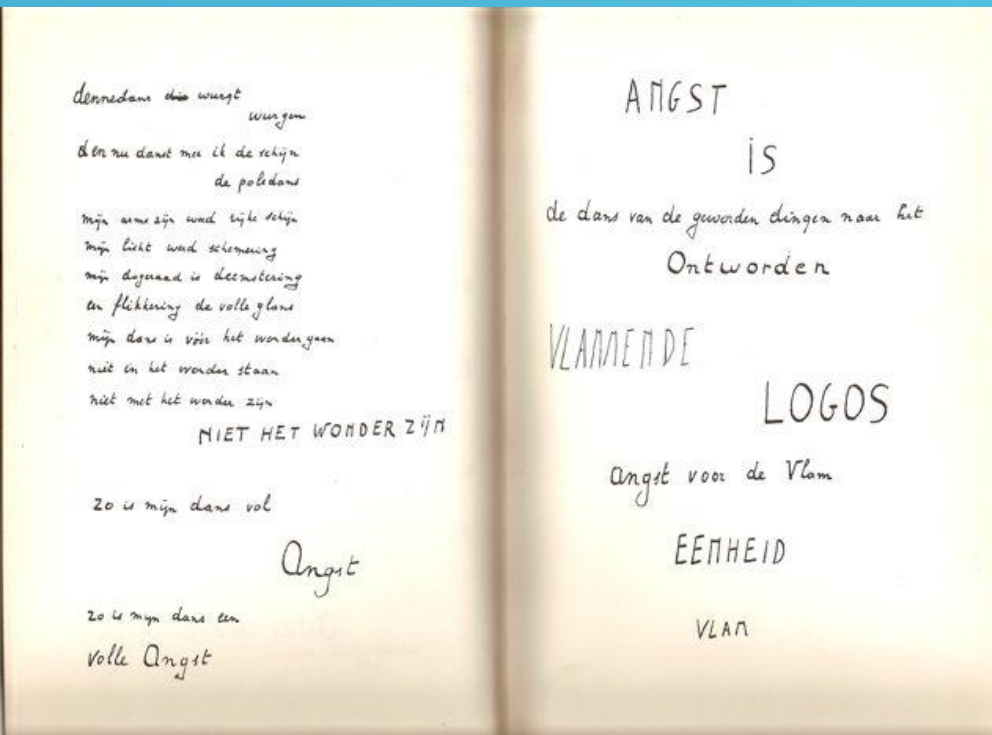 dennedans die wurgt
wurgen
en nu danst mee ik de schijn
de poledans
mijn arme zijn werd rijke schijn
mijn licht werd schemering
mijn dageraad is deemstering
een flikkering de volle glans
mijn dans is vóór het wonder gaan
niet in het wonder staan
niet met het wonder zijn
NIET HET WONDER ZIJN
zo is mijn dans vol
Angst
zo is mijn dans een
volle Angst
ANGST
is
de dans van de geworden dingen naar het
Ontworden
VLAMMENDE
LOGOS
angst voor de Vlam
EENHEID
VLAM